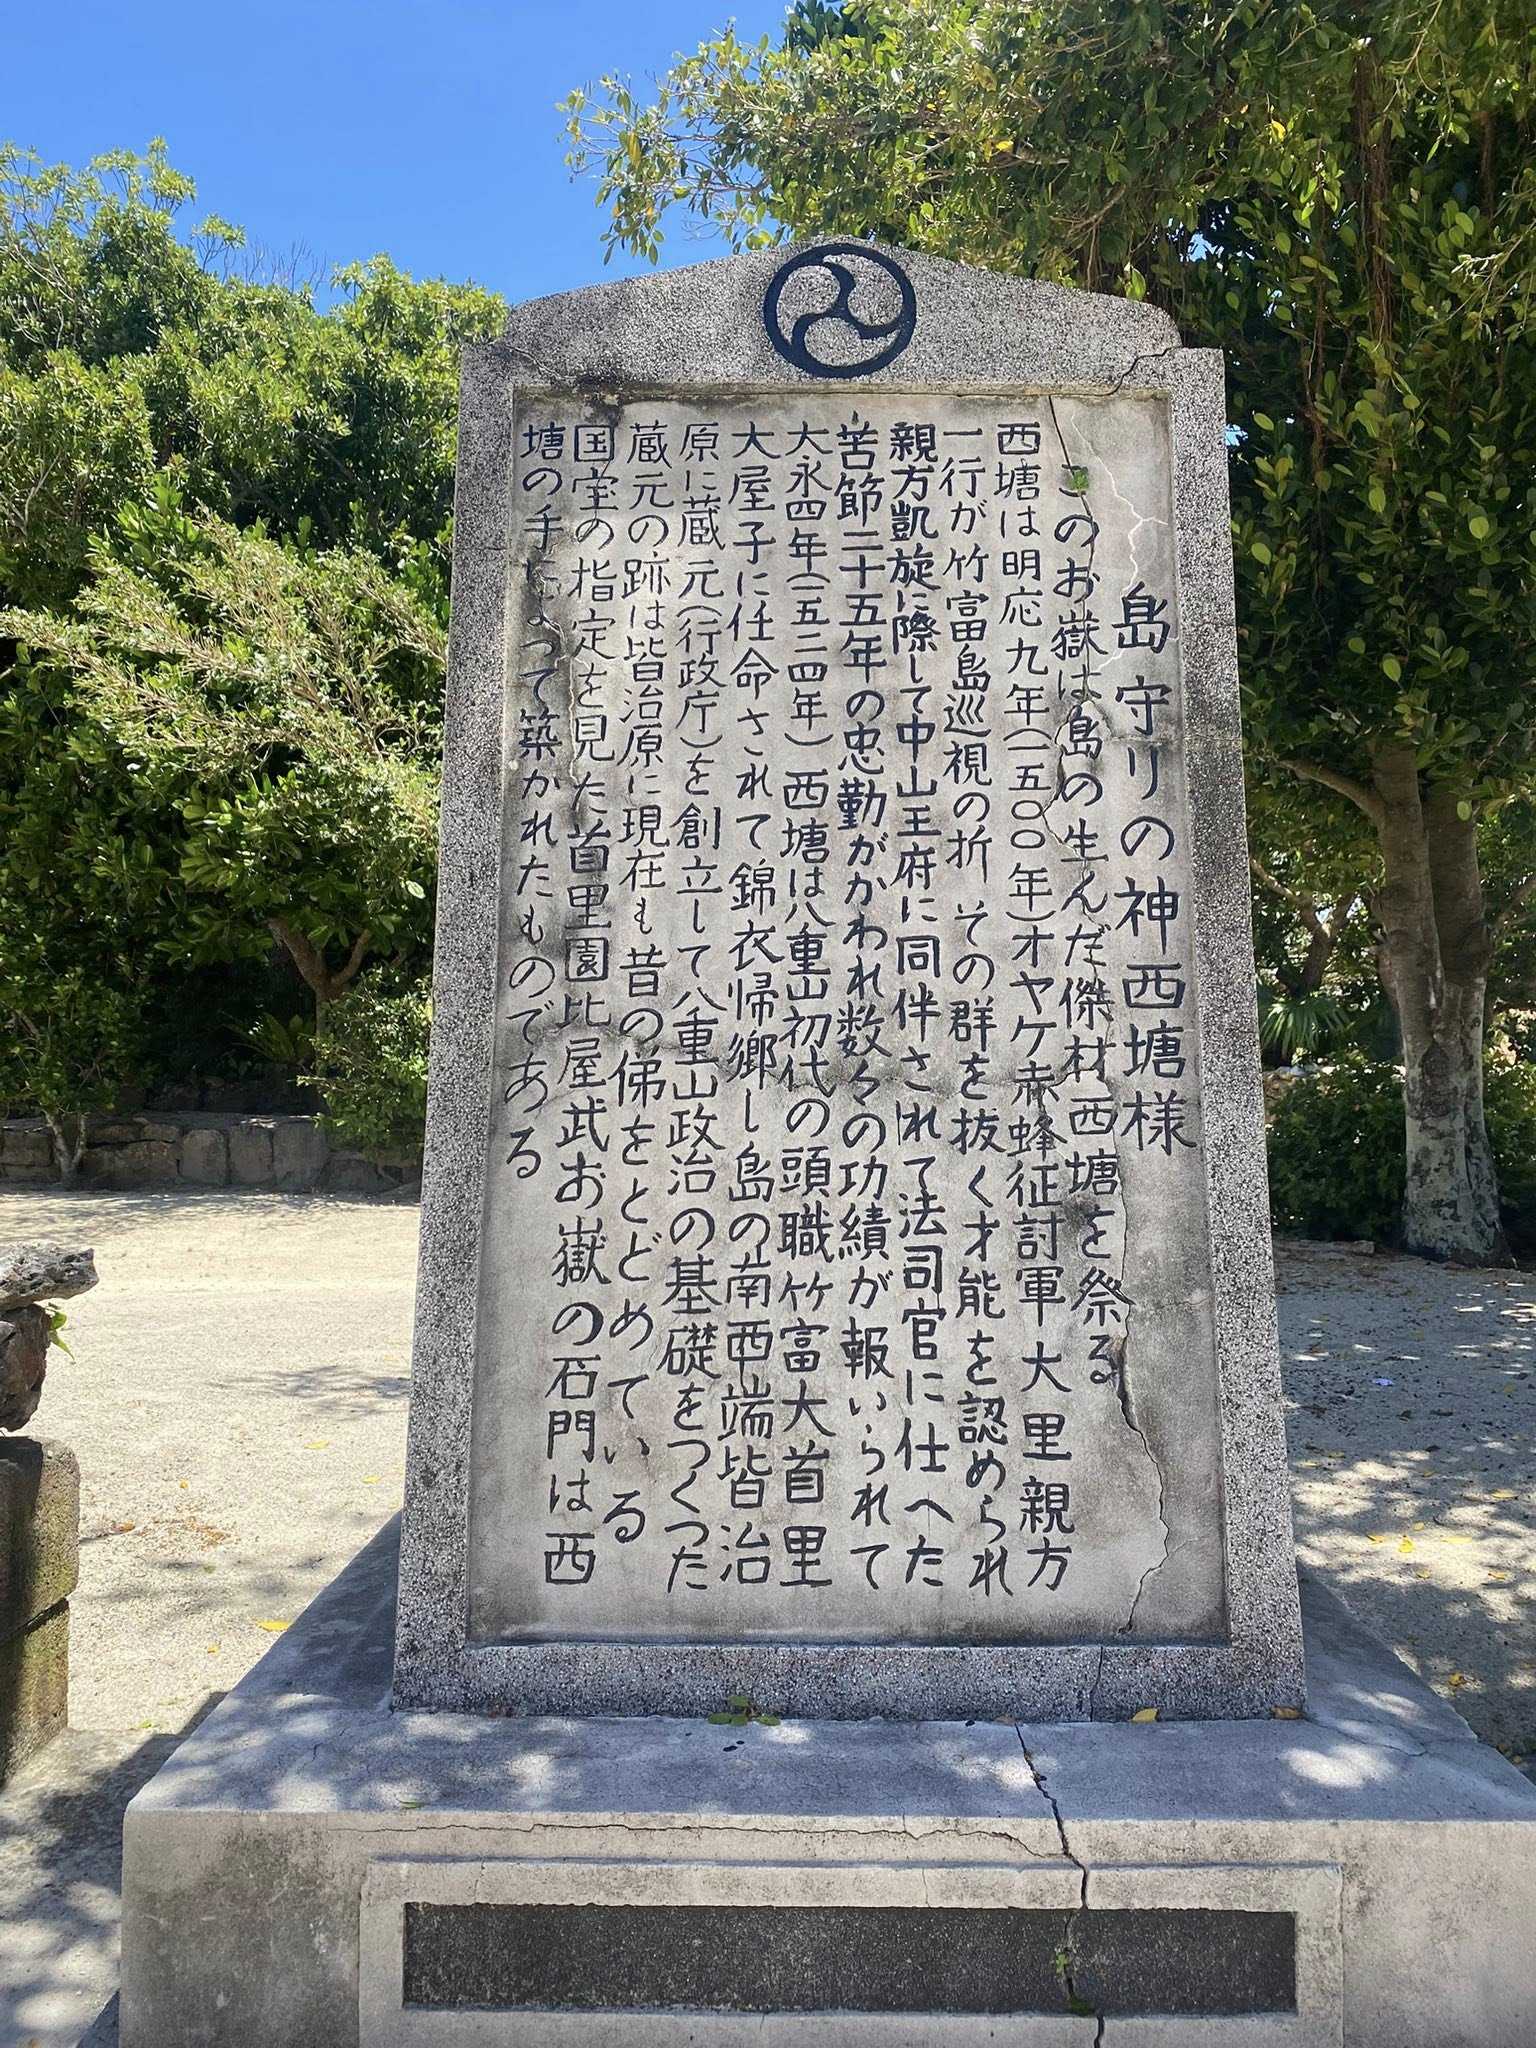 島守りの神西塘様
このお嶽は島の生んだ傑材西塘を祭る
西塘は明応九年(一五〇〇年)オヤケ赤蜂征討軍大里親方
一行が竹富島巡視の折その群を抜く才能を認められ
親方凱旋に際して中山王府に同伴されて法司官に仕へた
苦節二十五年の忠勤がかわれ数々の功績が報いられて
大永四年(一五二四年)西塘は八重山初代の頭職竹富大首里
大屋子に任命されて錦衣帰郷し島の南西端皆治
原に蔵元(行政庁)を創立して八重山政治の基礎をつくった
蔵元の跡は皆治原に現在も昔の俤をとどめている
国宝の指定を見た首里園比屋武お嶽の石門は西
塘の手によって築かれたものである